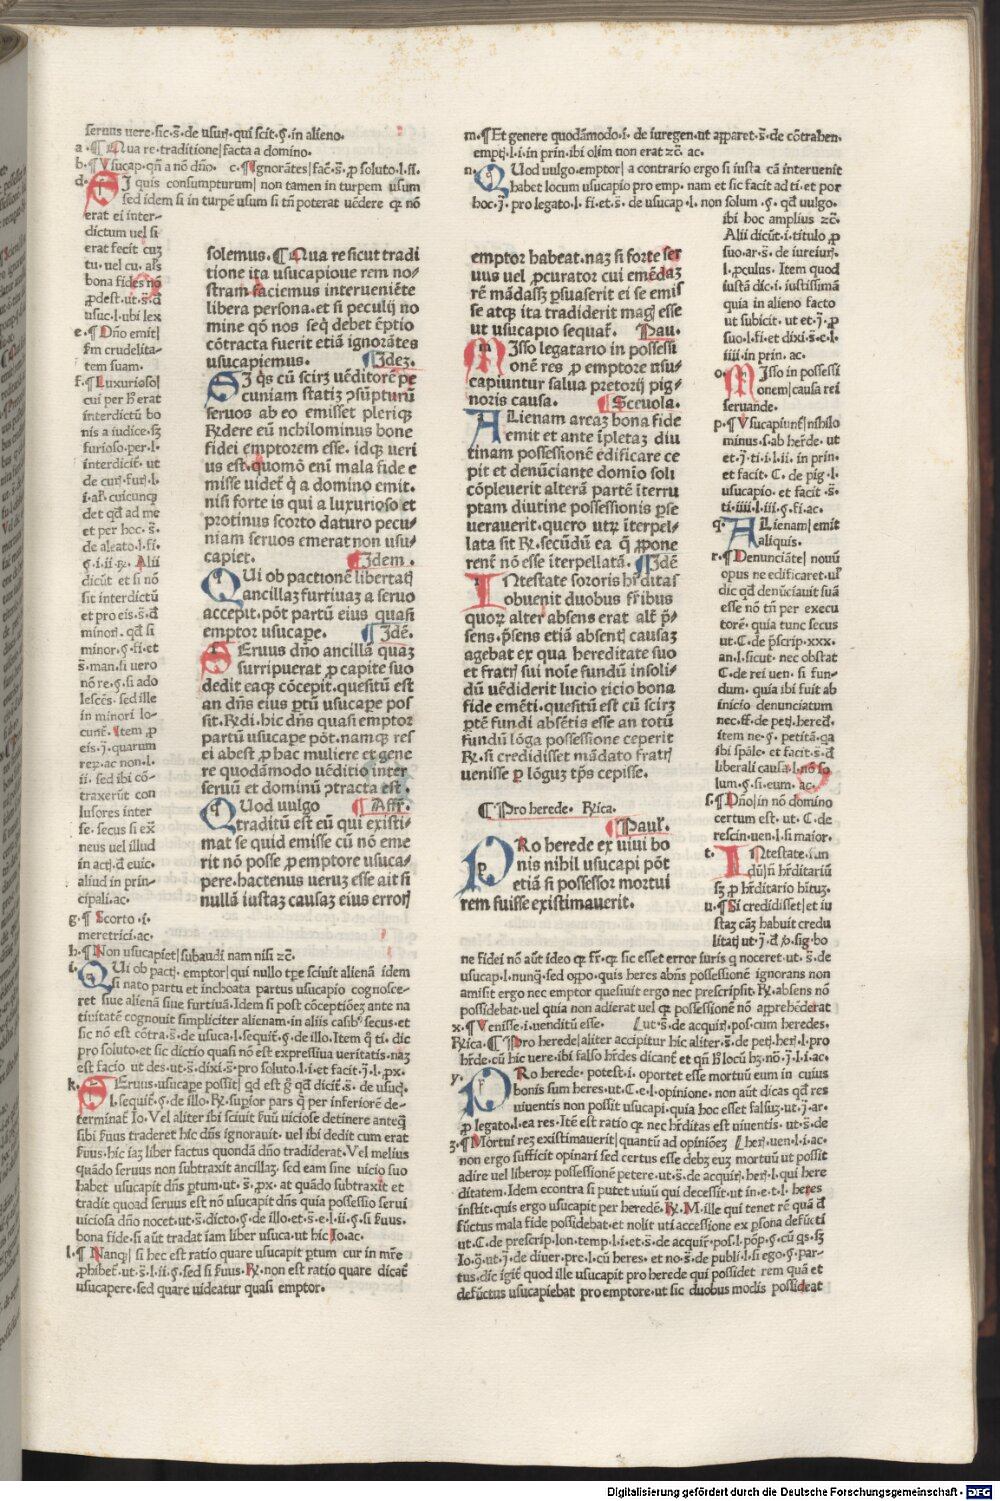 seruus uere·sic·s̄·de usurꝭ·qui scit·ꝯ·in alieno.
a·¶Qua re·traditione|facta a domino.
b·¶Vsucap·qñ a nō dño.   c·¶Ignorātes|fac̄·s̄·ꝓ soluto·l·ff.
d·SI quis consumpturum|non tamen in turpem usum
sed idem si in turpē usum si tñ poterat uēdere qꝛ nō
erat ei inter-
dictum uel si
erat fecit cuꝫ
tu·uel cu·als̄
bona fides nō
ꝓdest·ut·s̄·d̄
usuc·l·ubi lex
e·¶Dño emit|
f̄m crudelita-
tem suam.
f·¶Luxurioso|
cui per ħ erat
interdictū bo
nis a iudice·sꝫ
furioso·per·l·
interdicit̄·ut
de cur̄·fur̄·l·
i·
det qđ ad me
et per hoc·s̄·
de aleato·l·fi·
ꝯ·i·ii·℞·Alii
dicūt et si nō
sit interdictū
et pro eis·s̄·đ
minorꝭ·qđ si
minor·ꝯ·fi·et
s̄·man·si uero
nō re·ꝯ·si ado
lescēs·sed ille
in minori lo-
cunt̄·Item ꝓ
eis·j̄·quarum
reꝝ·ac non·l·
ii·sed ibi cō-
traxerūt con
lusores inter
se·secus si ex̄
neus uel illud
in actꝭ·đ euic·
aliud in prin-
cipali·ac·
g·¶Scorto·i·
meretrici·ac·
h·¶Non usucapiet|subaudi nam nisi zc̄.
i·QUi ob pactꝭ·emptor|qui nullo tꝑe sciuit alienā idem
si nato partu et inchoata partus usucapio cognosce-
ret siue alienā siue furtiuā·Idem si post cōceptiōeꝫ ante na
tiuitatē cognouit simpliciter alienam·in aliis casibꝰ secus·et
sic nō est cōtra·s̄·de usuca·l·sequit̄·ꝯ·de illo·Item ꝙ ti·dic
pro soluto·et sic dictio quasi nō est expressiua ueritatis·naꝫ
est facio ut des·ut·s̄·dixi·s̄·pro soluto·l·i·et facit·j̄·l·ꝓx·
k·SEruus·usucape possit|qđ est ḡ qđ dicit̄·s̄·de usucꝭ·
l·sequit̄·ꝯ·de illo·℞·superior pars ꝙ per inferiorē de-
terminat̄ Io·Vel aliter ibi sciuit s̄uū uiciose detinere anteꝗ
sibi s̄uus traderet hic dñs ignorauit·uel ibi dedit cum erat
s̄uus·hic iaꝫ liber factus quondā dño tradiderat·Vel melius
quādo seruus non subtraxit ancillaꝫ·sed eam sine uicio suo
habet usucapit dñs ꝑtum·ut·s̄·ꝓx·at quādo subtraxit et
tradit quoad seruus est nō usucapit dñs quia possessio serui
uiciosa dño nocet·ut·s̄·dicto·ꝯ·de illo·et·s̄·e·l·ii·ꝯ·si s̄uus.
bona fide·si aūt tradat iam liber usuca·ut hic Io·ac·
l·¶Nanqꝫ| si hec est ratio quare usucapit ptum cur in mr̄e
ꝓhibet̄·ut·s̄·l·ii·ꝯ·sed si s̄uus·℞·non est ratio quare dicat̄
usucapere·sed quare uideatur quasi emptor·
solemus·¶Qua re sicut tradi
tione ita usucapioue rem no-
stram faciemus interueniēte
libera persona·et si peculij no
mine qō nos seqꝭ debet ēptio
cōtracta fuerit etiā ignorātes
usucapiemus.   ¶Ideꝫ.
SI qꝭs cū scirꝫ uēditorē pe
cuniam statiꝫ ↄsūpturū
seruos ab eo emisset pleriqꝫ
℞dere eū nchilominus bone
fidei emptorem esse·idqꝫ ueri
us est·quomō eni mala fide e
misse videt̄ ꝗ a domino emit·
nisi forte is qui a luxurioso et
protinus scorto daturo pecu-
niam seruos emerat non usu-
capiet.   ¶Idem.
QUi ob pactionē libertatꝭ
ancillaꝫ furtiuaꝫ a seruo
accepit·pōt partū eius quasi
emptor usucape.   ¶Idē.
SEruus dño ancillā quaꝫ
surripuerat ꝓ capite suo
dedit eaqꝫ cōcepit·quesitū est
an dñs eius ꝑtū usucape pos
sit·℞di·hic dñs quasi emptor
partū usucape pōt·namqꝫ res
ei abest ꝓ hac muliere et gene
re quodāmodo uēditio inter
seruū et dominū ↄtracta est.
QUod uulgo   ¶Affr̄.
traditū est eū qui existi-
mat se quid emisse cū nō eme
rit nō posse ꝓ emptore usuca-
pere·hactenus ueruꝫ esse ait si
nullā iustaꝫ causaꝫ eius errorꝭ
m·¶Et genere quodāmodo·i·de iuregen·ut apparet·s̄·de cōtrahen.
emptꝭ·l·i·in prin·ibi olim non erat zc̄·ac·
n·QUod uulgo·emptor| a contrario ergo si iusta cā interuenit
habet locum usucapio pro emp·nam et sic facit ad ti·et por
hoc·j̄·pro legato·l·fi·et·s̄·de usucap·l·non solum·ꝯ·qđ uulgo.
ibi hoc amplius zc̄·
Alii dicūt·i·titulo ꝓ
suo·ar·s̄·de iureiur̄·
l·ꝓculus·Item quod
iustā dic·i·iustissimā
quia in alieno facto
ut subicit·ut et·j̄·ꝓ
suo·l·fi·et dixi·s̄·e·l·
iiii·in prin·ac·
o·MIsso in possessi
onem|causa rei
seruande·
p·¶Vsucapiunt̄|nihilo
minus·s·ab herde·ut
et·j̄·ti·i·l·ii·in prin·
et facit·C·de pig·l·
usucapio·et facit·s̄·
ti·iiii·l·iii·ꝯ·fi·ac·
q·ALienam|emit
aliquis.
r·¶Denunciāte|nouū
opus ne edificaret·uł
dic qđ denūciauit suā
esse nō tñ per execu
torē·quia tunc secus
ut·C·de p̄scrip·xxx·
an·l·sicut·nec obstat
C·de rei uen·si fun-
dum·quia ibi fuit ab
inicio denunciatum
nec·ff·de petꝭ·hered̄·
item ne·ꝯ·petitā·ga
ibi spāle·et facit·s̄·đ
liberali causa·l·nō so
lum·ꝯ·si eum·ac·
s·¶Dño|in nō domino
certum est·ut·C·de
rescin·uen·l·si maior.
t·INtestate·fun
dū|ñ hr̄ditariū
sꝫ ꝓ hr̄ditario hr̄uꝫ.
u·¶Si credidisset|et iu
staꝫ cāꝫ habuit credu
litatꝭ ut·j̄·đ ꝓ·sig·bo
ne fidei nō aūt ideo qꝛ fr̄·qꝛ sic esset error iuris q noceret·ut·s̄·de
usucap·l·nunꝗ·sed oppo·quis heres abñs possessionē ignorans non
amisit ergo nec emptor quesiuit ergo nec prescripsit·℞·absens nō
possidebat·uel quia non adierat uel qꝛ possessionē nō apprehēderat
x·¶Venisse·i·uenditū esse.   ⟨ut·s̄·de acquirꝭ·pos·cum heredes.
℞ica·¶Pro herede|aliter accipitur hic aliter·s̄·de petꝭ·herꝭ·l·pro
hr̄de·cū hic uere·ibi falso hr̄des dicant̄ et qñ ħ locū hꝫ·nō·j̄·l·i·ac·
y·PRo herede·potest·i·oportet esse mortuū eum in cuius
bonis sum heres·ut·C·e·l·opinione·non aūt dicas qđ res
uiuentis non possit usucapi·quia hoc esset falsuꝫ·ut·j̄·ar·
ꝓ legato·l·ea res·Itē est ratio qꝛ nec hr̄ditas est uiuentis·ut·s̄·de
z·¶Mortui reꝫ existimauerit|quantū ad opiniōeꝫ ⟨herꝭ·uen·l·i·ac·
non ergo sufficit opinari sed certus esse debꝫ euꝫ mortuū ut possit
adire uel liberoꝝ possessionē petere·ut·s̄·de acquirꝭ·herꝭ·l·qui here
ditatem·Idem econtra si putet uiuū qui decessit·ut in·e·t·l·heres
instit·quis ergo usucapit per heredē·℞·M·ille qui tenet rē quā đ
fūctus mala fide possidebat·et nolit uti accessione ex ꝑsona defūcti
ut·C·de prescrip·lon·temp·l·i·et·s̄·de acquir̄·pos·l·pōp·ꝯ·cū ꝗs·sꝫ
Io·ꝗ·ut·j̄·de diuer·pre·l·cū heres·et no·s̄·de publi·l·si ego·ꝯ·par-
tus·dic igit̄ quod ille usucapit pro herede qui possidet rem quā et
defūctus usucapiebat pro emptore·ut sic duobus modis possideat
emptor habeat·naꝫ si forte ser
uus vel ꝓcurator cui emēdaꝫ
rē mādassꝫ ꝑsuaserit ei se emis
se atqꝫ ita tradiderit magꝭ esse
ut usucapio sequat̄.   ¶Pau.
MIsso legatario in possessi
onē res ꝓ emptore usu-
capiuntur salua pretorij pig-
noris causa.   ¶Sceuola.
ALienam areaꝫ bona fide
emit et ante īpletaꝫ diu
tinam possessionē edificare ce
pit et denūciante domīo soli
cōpleuerit alterā partē īterru
ptam diutine possessionis ꝑse
uerauerit·quero utꝝ īterpel-
lata sit ℞·secūdū ea ꝗ ꝓpone
rent̄ nō esse īterpellatā.   ¶Idē
INtestate sororis hr̄ditas
obuenit duobus fr̄ibus
quoꝝ alter absens erat alt̄ p̄-
sens·p̄sens etiā absentꝭ causaꝫ
agebat ex qua hereditate suo
et fratrꝭ sui noīe fundū insoli-
dū vēdiderit lucio ticio bona
fide emēti·quesitū est cū scirꝫ
ꝑtē fundi absētis esse an totū
fundū lōga possessione ceperit
℞·si credidisset mādato fratrꝭ
venisse ꝑ lōguꝫ tꝑs cepisse.
¶Pro herede·℞ica.
¶Paul̄.
PRo herede ex uiui bo
nis nihil usucapi pōt
etiā si possessor mortui
rem fuisse existimauerit.
Digitalisierung gefördert durch die Deutsche Forschungsgemeinschaft - DFG